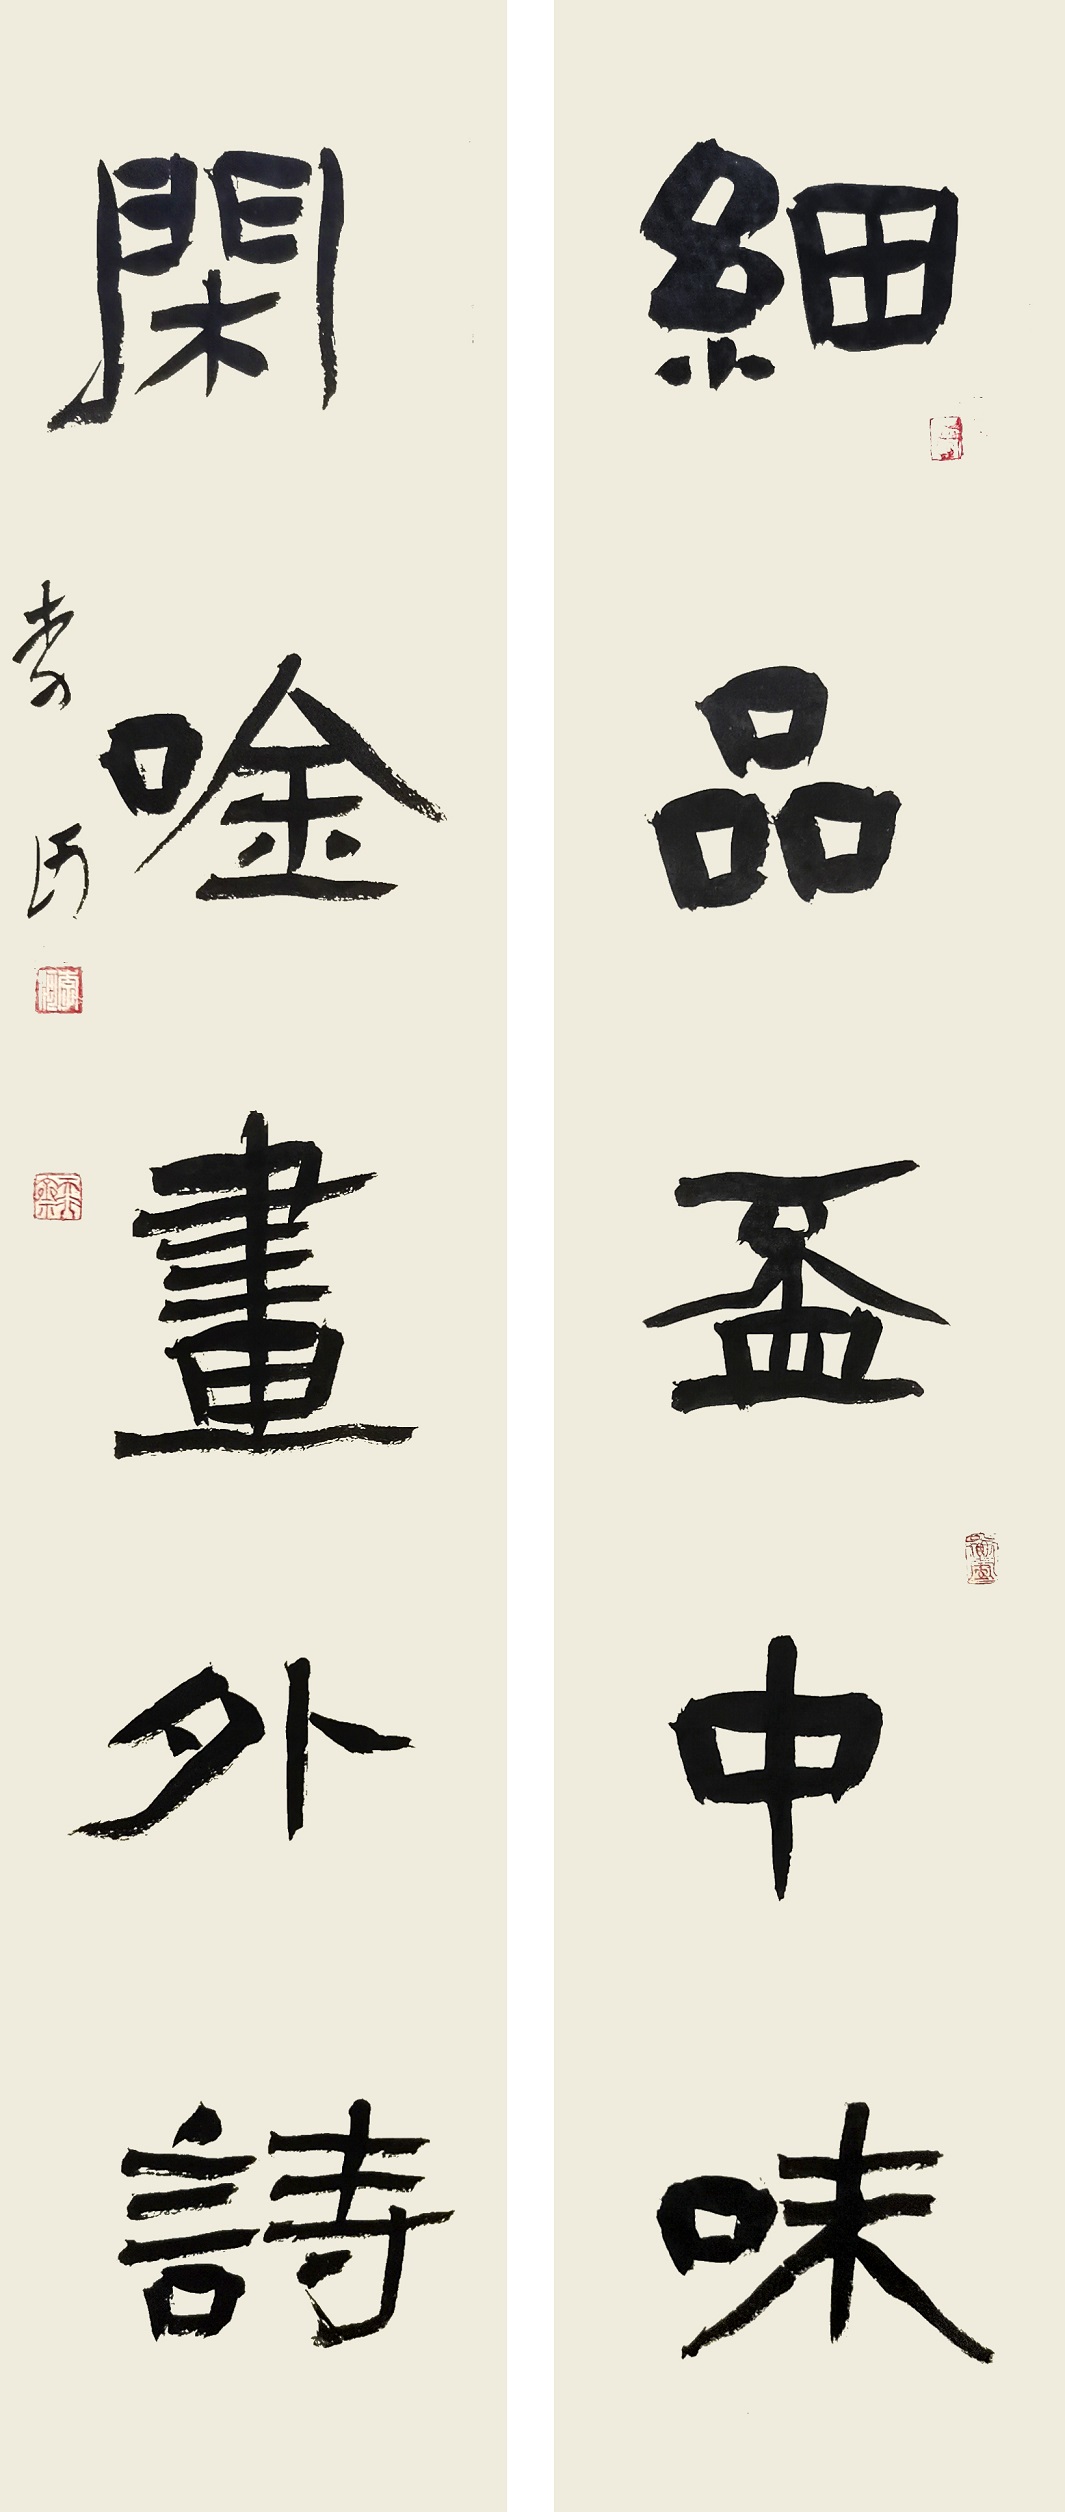 細品盃中味
閑唫畫外詩